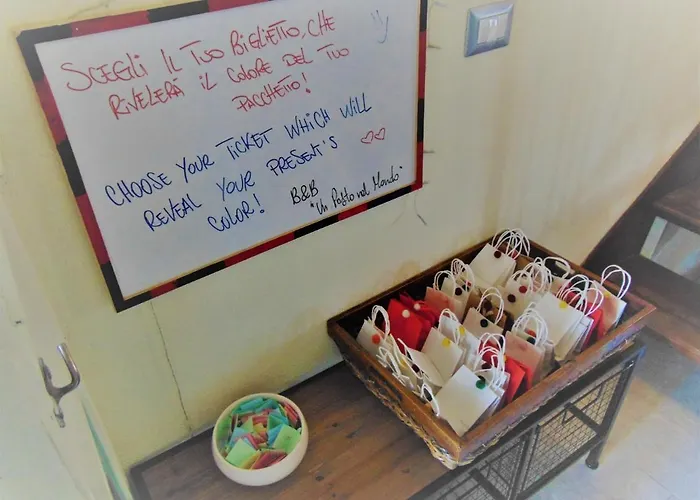 SCEGLI IL TUO BIGLIETTO, CHE
RIVELERÀ IL COLORE DEL TUO
PACCHETTO!
CHOOSE YOUR TICKET WHICH WILL
REVEAL YOUR PRESENT'S
COLOR!
B&B
"Un Posto nel Mondo"